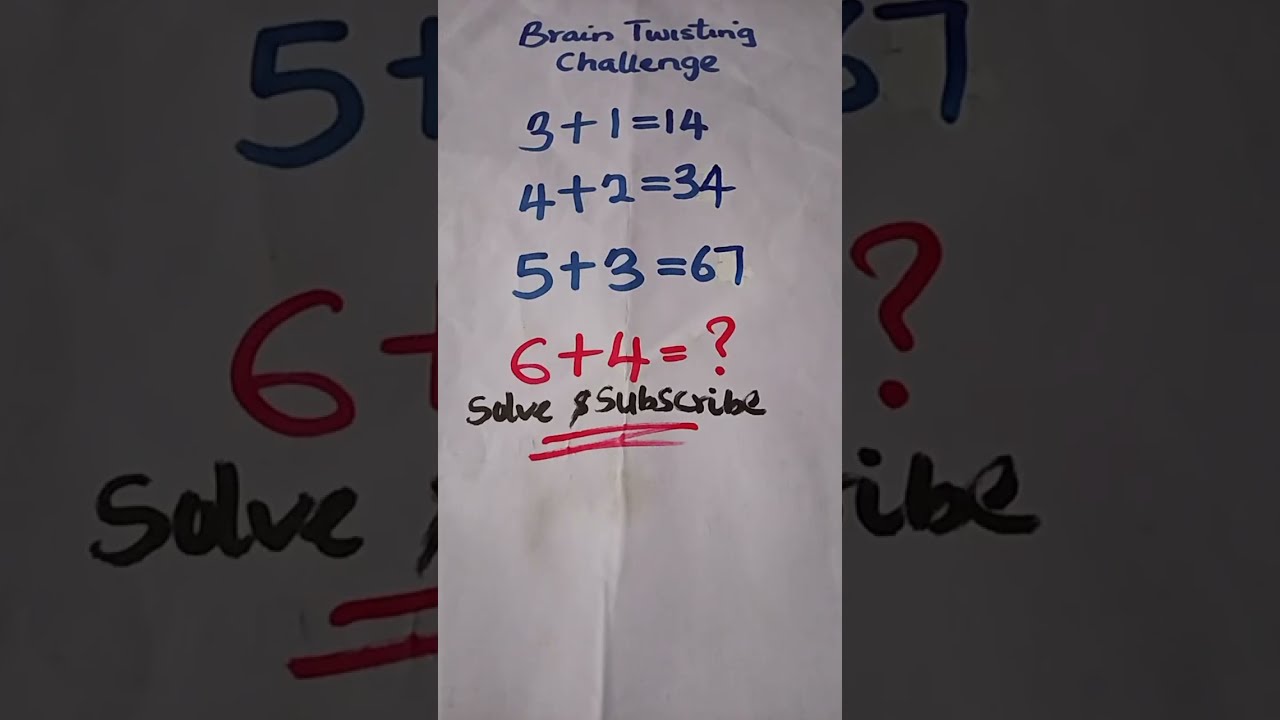 Brain Twisting
Challenge
3+1=14
4+2=34
5+3=67
6+4=?
Solve & Subscribe